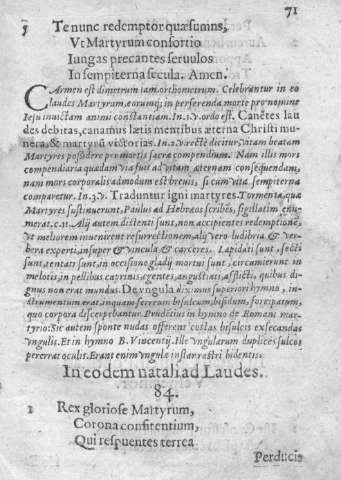 71
5 Te nunc redemptor quæsumns,
Vt Martyrum consortio
Iungas precantes seruulos
In sempiterna secula. Amen.
CArmen est dimetrum iam. orthometrum. Celebrantur in eo
laudes Martyrum, eorumq; in perferenda morte pro nomine
Iesu inuictam animi constantiam. In .1. v. ordo est. Canẽtes lau
des debitas, canamus lætis mentibus æterna Christi mu
nera, & martyrũ victorias. In .2. v. rectè dicitur, vitam beatam
Martyres possidere per mortis sacræ compendium. Nam illis mors
compendiaria quædam via fuit ad vitam æternam consequendam,
nam mors corporalis admodum est breuis, si cum vita sempiterna
comparetur. In .3. v. Traduntur igni martyres. Tormenta, quæ
Martyres sustinuerunt, Paulus ad Hebræos scribẽs, sigillatim enu-
merat. c. 11. Alij autem distenti sunt, non accipientes redemptionẽ,
vt meliorem inuenirent resurrectionem, alij verò ludibria & ver-
bera experti, insuper & vincula & carceres. Lapidati sunt, secti
sunt, tentati sunt, in occisione gladij mortui sunt, circumierunt in
melotis, in pellibus caprinis, egentes, angustiati, afflicti, quibus di-
gnus non erat mundus. De vngula diximus superiori hymno, in-
strumentum erat, inquam ferreum bisulcum, bifidum, forcipatum,
quo corpora discerpebantur. Prudẽtius in hymno de Romani mar-
tyrio: Sic autem sponte nudas offerens costas bisulcis exsecandas
vngulis. Et in hymno B. Vincentij. Ille vngularum duplices sulcos
pererrat oculis. Erant enim vngulæ instar rastri bidentis.
In eodem natali, ad Laudes.
84.
1 Rex gloriose Martyrum,
Corona confitentium,
Qui respuentes terrea
Perducis